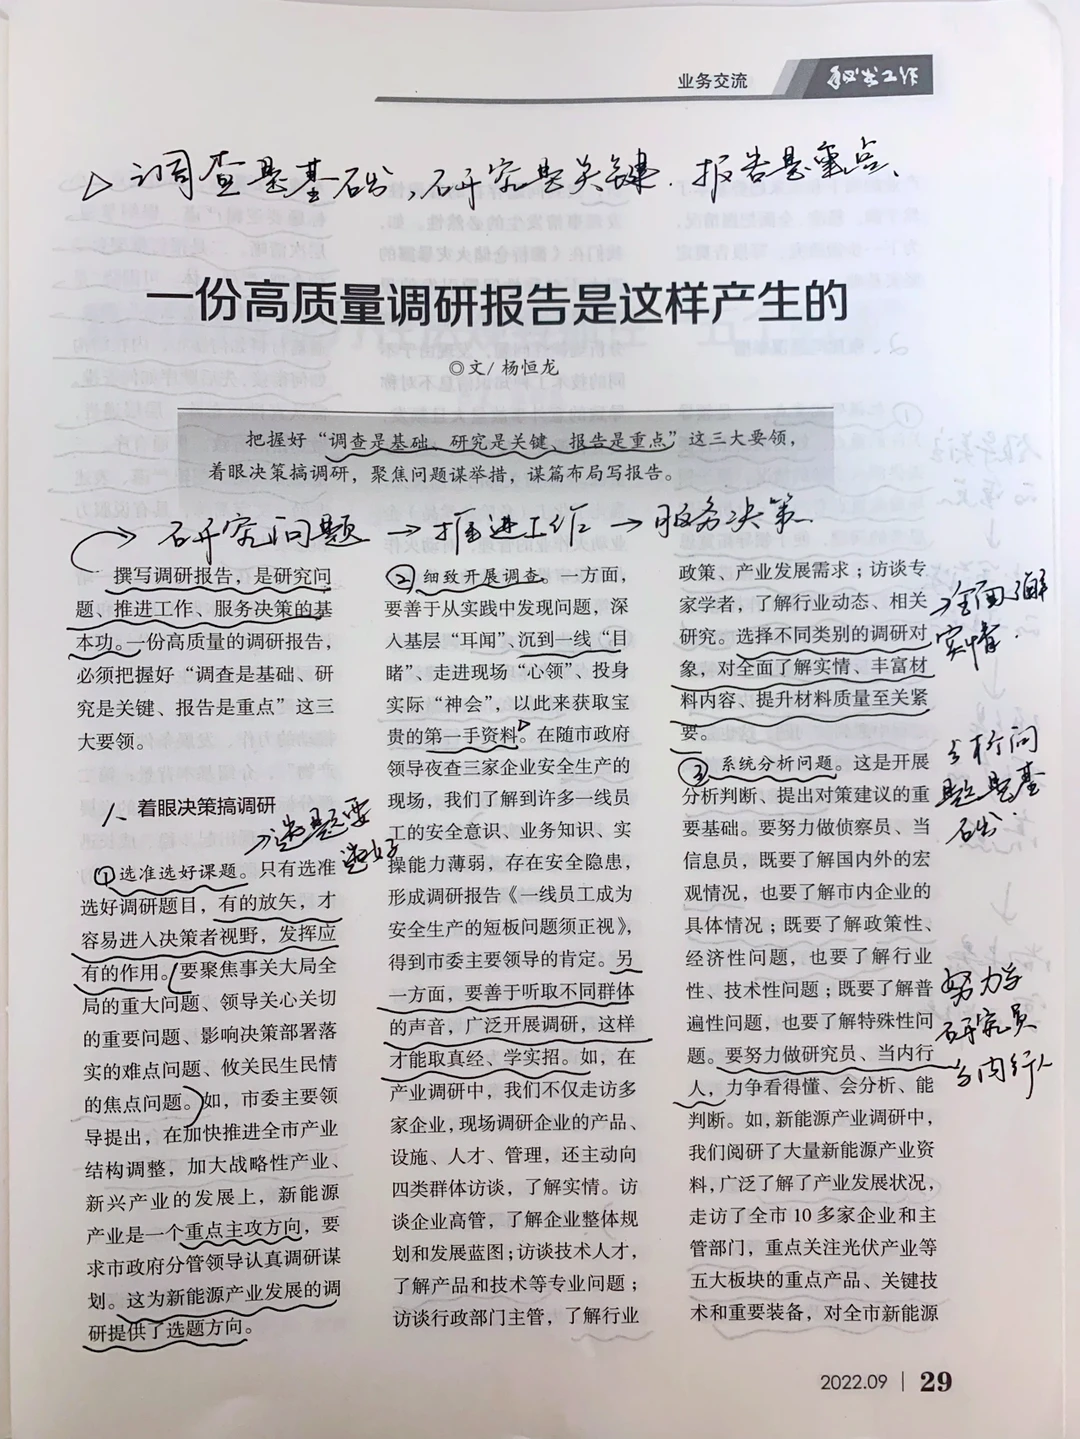 业务交流
秘书工作
▷ 调查是基础，研究是关键．报告是重点、
一份高质量调研报告是这样产生的
◎文/ 杨恒龙
把握好“调查是基础、研究是关键、报告是重点”这三大要领，
着眼决策搞调研，聚焦问题谋举措，谋篇布局写报告。
→ 研究问题 → 推进工作 → 服务决策
撰写调研报告，是研究问
题、推进工作、服务决策的基
本功。一份高质量的调研报告，
必须把握好“调查是基础、研
究是关键、报告是重点”这三
大要领。
一、着眼决策搞调研
→选题要
选好
①选准选好课题。只有选准
选好调研题目，有的放矢，才
容易进入决策者视野，发挥应
有的作用。（要聚焦事关大局全
局的重大问题、领导关心关切
的重要问题、影响决策部署落
实的难点问题、攸关民生民情
的焦点问题。）如，市委主要领
导提出，在加快推进全市产业
结构调整，加大战略性产业、
新兴产业的发展上，新能源
产业是一个重点主攻方向，要
求市政府分管领导认真调研谋
划。这为新能源产业发展的调
研提供了选题方向。
②细致开展调查。一方面，
要善于从实践中发现问题，深
入基层“耳闻”、沉到一线“目
睹”、走进现场“心领”、投身
实际“神会”，以此来获取宝
贵的第一手资料。在随市政府
领导夜查三家企业安全生产的
现场，我们了解到许多一线员
工的安全意识、业务知识、实
操能力薄弱，存在安全隐患，
形成调研报告《一线员工成为
安全生产的短板问题须正视》，
得到市委主要领导的肯定。另
一方面，要善于听取不同群体
的声音，广泛开展调研，这样
才能取真经、学实招。如，在
产业调研中，我们不仅走访多
家企业，现场调研企业的产品、
设施、人才、管理，还主动向
四类群体访谈，了解实情。访
谈企业高管，了解企业整体规
划和发展蓝图；访谈技术人才，
了解产品和技术等专业问题；
访谈行政部门主管，了解行业
政策、产业发展需求；访谈专
家学者，了解行业动态、相关
研究。选择不同类别的调研对
象，对全面了解实情、丰富材
料内容、提升材料质量至关紧
要。
→全面了解
实情．
③系统分析问题。这是开展
分析判断、提出对策建议的重
要基础。要努力做侦察员、当
信息员，既要了解国内外的宏
观情况，也要了解市内企业的
具体情况；既要了解政策性、
经济性问题，也要了解行业
性、技术性问题；既要了解普
遍性问题，也要了解特殊性问
题。要努力做研究员、当内行
人，力争看得懂、会分析、能
判断。如，新能源产业调研中，
我们阅研了大量新能源产业资
料，广泛了解了产业发展状况，
走访了全市 10 多家企业和主
管部门，重点关注光伏产业等
五大板块的重点产品、关键技
术和重要装备，对全市新能源
分析问
题是基
础．
努力当
研究员
当内行人
2022.09 | 29